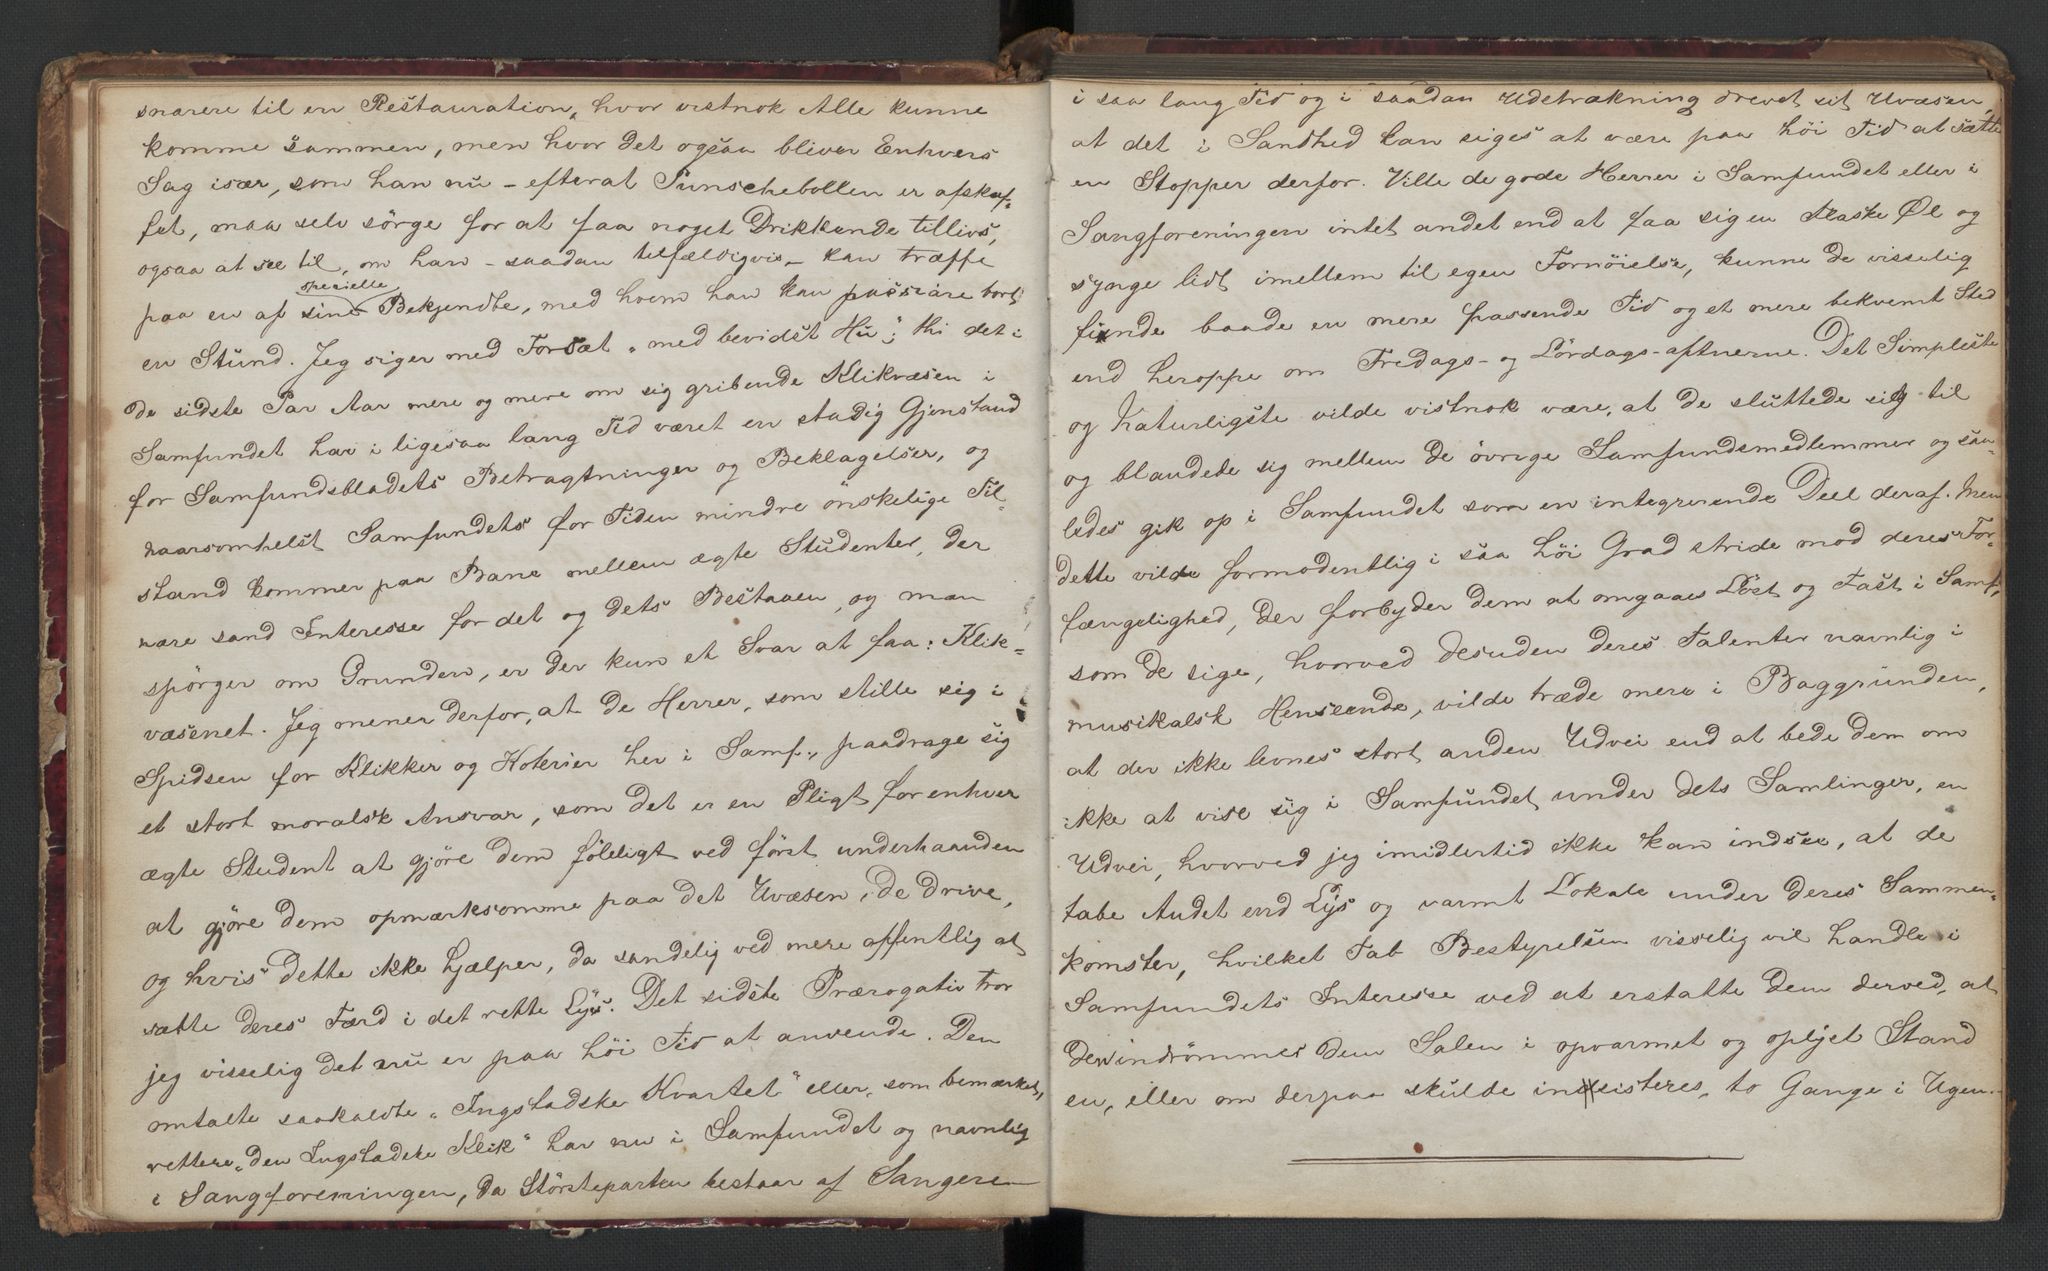 snarere til en Restauration, hvor vistnok Alle kunne
komme sammen, men hvor det ogsaa bliver Enhvers
Sag især, som han nu - efterat Punschebollen er afskaf-
fet, maa selv sörge for at faa noget Drikkende tillivs,
ogsaa at see til, om han - saadan tilfældigvis - kan træffe
specielle
paa en af sine Bekjendte, med hvem han kan passiare bort
en Stund. Jeg siger med Forsæt "med bevidst Hu"; thi det i
de sidste Par Aar mere og mere om sig gribende Klikvæsen i
Samfundet har i ligesaa lang Tid været en stadig Gjenstand
for Samfundsbladets Betragtninger og Beklagelser, og
naarsomhelst Samfundets for Tiden mindre önskelige Til-
stand kommer paa Bane mellem ægte Studenter, der
nære sand Interesse for det og dets Bestaaen, og man
spörger om Grunden, er der kun et Svar at faa: Klik-
væsenet. Jeg mener derfor, at de Herrer, som stille sig i
Spidsen for Klikker og Koterier her i Samf., paadrage sig
et stort moralsk Ansvar, som det er en Pligt for enhver
ægte Student at gjöre dem föleligt ved först underhaanden
at gjöre dem opmærksomme paa det Uvæsen, de drive,
og hvis dette ikke hjælper, da sandelig ved mere offentlig at
sætte deres Færd i det rette Lys. Det sidste Prærogativ tror
jeg visselig det nu er paa höi Tid at anvende. Den
omtalte saakaldte "Ingstadske Kvartet" eller, som bemærket,
rettere "den Ingstadske Klik" har nu i Samfundet og navnlig
i Sangforeningen, da Störsteparten bestaar af Sangere
i saa lang Tid og i saadan Udstrækning drevet sit Uvæsen,
at det i Sandhed kan siges at være paa höi Tid at sætte
en Stopper derfor. Ville de gode Herrer i Samfundet eller i
Sangforeningen intet andet end at faa sig en Flaske Øl og
synge lidt imellem til egen Fornöielse, kunne de visselig
finde baade en mere passende Tid og et mere bekvemt Sted
end heroppe om Fredags- og Lördags-aftnerne. Det Simpleste
og Naturligste vilde vistnok være, at de sluttede sig til
og blandede sig mellem de övrige Samfundsmedlemmer og saa-
ledes gik op i Samfundet som en integrerende Deel deraf. Men
dette vilde formodentlig i saa höi Grad stride mod deres For-
fængelighed, der forbyder dem at omgaaes Löst og Fast i Samf.,
som de sige, hvorved desuden deres Talenter navnlig i
musikalsk Henseende, vilde træde mere i Baggrunden,
at der ikke levnes stort anden Udvei end at bede dem om
ikke at vise sig i Samfundet under dets Samlinger, en
Udvei, hvorved jeg imidlertid ikke kan indsee, at de
tabe Andet end Lys og varmt Lokale under deres Sammen-
komster, hvilket Tab Bestyrelsen visselig vil handle i
Samfundets Interesse ved at erstatte dem derved, at
der indrömmes dem Salen i opvarmet og oplyst Stand
en, eller om derpaa skulde insisteres, to Gange i Ugen.